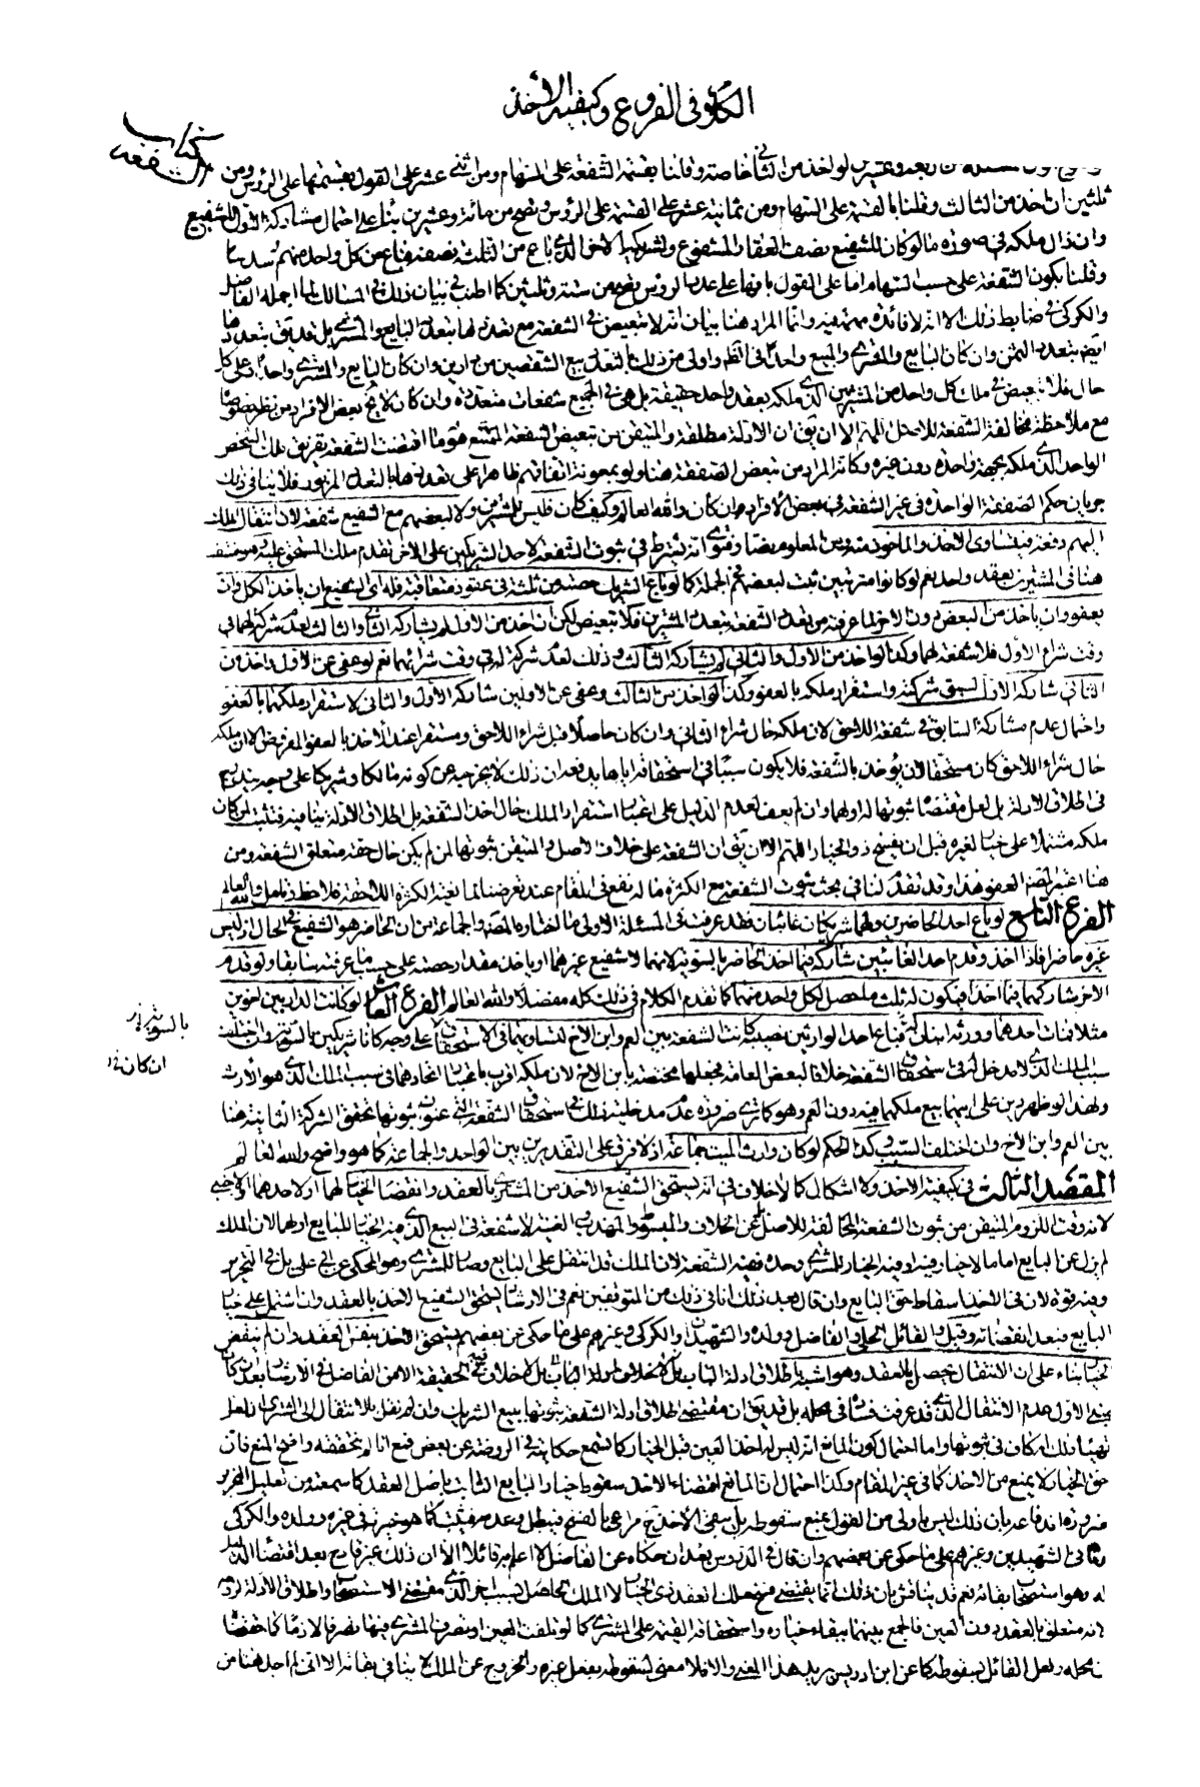 الكلام في الفروع وكيفية الأخذ
كتاب الشفعة
لو اخذ من الثاني خاصة وقلنا بقسمة الشفعة على السهام ومن اثني عشر على القول بقسمتها على الرؤس ومن
ثلثين ان اخذ من الثالث وقلنا بالقسمة على السهام ومن ثمانية عشر على القسمة على الرؤس وتصح من مائة وعشرين بناء على احتمال مشاركة الاول للشفيع
وان زال ملكه في صورة ما لو كان للشفيع نصف العقار المشفوع ولشريكه الاخر الذي باع من الثلثة نصفه فباع من كل واحد منهم سدسا
وقلنا بكون الشفعة على حسب السهام اما على القول بانها على عدد الرؤس تصح من ستة وثلثين كما اطنب في بيان ذلك في المسالك لما اجمله الفاضل
والكركي في ضابط ذلك الا انه لا فائدة مهمة فيه وانما المراد هنا بيان انه لا تبعيض في الشفعة مع تعددها بتعدد البايع والمشتري بل قد يق بتعددها
ايضا بتعدد الثمن وان كان البايع والمشتري والمبيع واحدا في الظاهر واولى من ذلك بالتعدد بيع الشقصين من دارين وان كان البايع والمشتري واحدا وعلى كل
حال فلا تبعيض في ملك كل واحد من المشتريين الذي ملكه بعقد واحد حقيقة بل هي في الجميع شفعات متعددة وان كان لا يخ بعض الافراد من نظر خصوصا
مع ملاحظة مخالفة الشفعة للاصل اللهم الا ان يق ان الادلة مطلقة والمتيقن من تبعيض الشفعة الممتنع هو ما اقتضت الشفعة تفريق ملك الشخص
الواحد الذي ملكه بجهة واحدة دون غيره وكانه المراد من تبعض الصفقة هنا ولو بمعونة اتفاقهم ظاهرا على تعددها بالتعدد المزبور فلا ينافي ذلك
جريان حكم الصفقة الواحدة في غير الشفعة في بعض الافراد وان كان والله العالم وكيف كان فليس للمشترين ولا لبعضهم مع الشفيع شفعة لان انتقال الملك
اليهم دفعة فيتساوى الاخذ والماخوذ منه ومن المعلوم نصا وفتوى انه يشترط في ثبوت الشفعة لاحد الشريكين على الاخر تقدم ملك المستحق عليه وهو منتف
هنا في المشترين بعقد واحد نعم لو كانوا مترتبين ثبت لبعضهم في الجملة كما لو باع الشريك حصته من ثلثة في عقود متعاقبة فله اي الشفيع ان ياخذ الكل وان
يعفو وان ياخذ من البعض دون الاخر لما عرفته من تعدد الشفعة بتعدد المشترين فلا تبعيض لكن ان اخذ من الاول لم يشاركه الثاني والثالث لعدم شركة لهما في
وقت شراء الاول فلا شفعة لهما وكذا لو اخذ من الاول والثاني لم يشاركه الثالث وذلك لعدم شركة له في وقت شرائهما نعم لو عفى عن الاول واخذ من
الثاني شاركه الاول لسبق شركته واستقرار ملكه بالعفو وكذا لو اخذ من الثالث وعفى عن الاولين شاركه الاول والثاني لاستقرار ملكهما بالعفو
واحتمال عدم مشاركة السابق في شفعة اللاحق لان ملكه حال شراء الثاني وان كان حاصلا قبل شراء اللاحق ومستقرا عند الاخذ بالعفو المفروض الا ان ملكه
حال شراء اللاحق كان مستحقا لان يؤخذ بالشفعة فلا يكون سببا في استحقاقه اياها يدفعه ان ذلك لا يخرجه عن كونه مالكا وشريكا على وجه يندرج
في اطلاق الادلة بل لعل مقتضاها ثبوتها له اولهما وان لم يعف لعدم الدليل على اعتبار استقرار الملك حال اخذ الشفعة بل اطلاق الادلة ينافيه فتثبت لمن كان
ملكه مشتملا على خيار لغيره قبل ان يفسخ ذو الخيار اللهم الا ان يق ان الشفعة على خلاف الاصل والمتيقن ثبوتها لمن لم يكن حال حقه متعلق الشفعة ومن
هنا اعتبر المصنف العفو هذا وقد تقدم لنا في بحث ثبوت الشفعة مع الكثرة ما له نفع في المقام عند تعرضنا لما بقية الكثرة اللاحقة فلاحظ وتامل والله العالم
الفرع التاسع لو باع احد الحاضرين ولهما شريكان غائبان فقد عرفت في المسئلة الاولى ما اختاره المصنف والجماعة من ان الحاضر هو الشفيع في الحال اذ ليس
غيره حاضرا فاذا اخذ وقدم احد الغائبين شاركه فيما اخذ الحاضر بالسوية لانهما لا شفيع غيرهما او ياخذ مقدار حصته على حسب ما عرفته سابقا ولو قدم
الاخر شاركهما فيما اخذا فيكون له ثلث ما حصل لكل واحد منهما كما تقدم الكلام في ذلك كله مفصلا والله العالم الفرع العاشر لو كانت الدار بين اخوين
مثلا فمات احدهما وورثه ابنان فباع احد الوارثين نصيبه كانت الشفعة بين العم وابن الاخ لتساويهما في الاستحقاق على وجه كانا شريكين بالسوية واختلاف
سبب الملك الذي لا مدخل له في استحقاق الشفعة خلافا لبعض العامة فجعلها مختصة بابن الاخ لان ملكه اقرب باعتبار اتحادهما في سبب الملك الذي هو الارث
ولهذا لو ظهر دين على ابيهما بيع ملكهما فيه دون العم وهو كما ترى ضرورة عدم مدخلية ذلك في استحقاق الشفعة التي عنوان ثبوتها تحقق الشركة الثابتة هنا
بين العم وابن الاخ وان اختلف السبب وكذا الحكم لو كان وارث الميت جماعة اذ لا فرق على التقديرين بين الواحد والجماعة كما هو واضح والله العالم
المقصد الثالث في كيفية الاخذ ولا اشكال كما لا خلاف في انه يستحق الشفيع الاخذ من المشتري بالعقد وانقضاء الخيار لهما او لاحدهما او لاجنبي
لانه وقت اللزوم المتيقن من ثبوت الشفعة المخالفة للاصل بل عن الخلاف والمبسوط والمهذب والغنية لا شفعة في البيع الذي فيه الخيار للبايع او لهما لان الملك
لم يزل عن البايع اما ما لا خيار فيه او فيه الخيار للمشتري وحده ففيه الشفعة لان الملك قد انتقل على البايع وصار للمشتري وهو المحكي عن ابي علي بل في التحرير
وفيه قوة لان في الاخذ اسقاط حق البايع وان قال بعد ذلك انا في ذلك من المتوقفين نعم في الارشاد يستحق الشفيع الاخذ بالعقد وان اشتمل على خيار
البايع فبعد انقضائه وقيل والقائل الحلي والفاضل وولده والشهيدان والكركي وغيرهم على ما حكي عن بعضهم يستحق الاخذ بنفس العقد وان لم ينقض
الخيار بناء على ان الانتقال يحصل بالعقد وهو اشبه باطلاق ادلة الباب بل
يبنى الاول عدم الانتقال الذي قد عرفت فساده في محله بل قد يق ان مقتضى اطلاق ادلة الشفعة ثبوتها ببيع الشريك وان لم نقل بالانتقال الى المشتري لعل
تهيئا ذلك امكان في ثبوتها واما احتمال كون المانع انه ليس له اخذ العين قبل الخيار كما تسمع حكايته في الروضة عن بعض فمع انا لم نتحققه واضح المنع فان
حق الخيار لا يمنع من الاخذ كما في غير المقام وكذا احتمال ان المانع اقتضاء الاخذ سقوط خيار البايع الثابت باصل العقد كما سمعته من تعليل التحرير
ضرورة اندفاعه بان ذلك ليس باولى من القول بمنع سقوطه بل يبقى الاخذ ح مراعى بالفسخ فيبطل وعدمه فيثبت كما هو خيرة في غيره وولده والكركي
وثاني الشهيدين وغيرهم على ما حكي عن بعضهم وان قال في الدروس بعد ان حكاه عن الفاضل لا اعلم به قائلا الا ان ذلك غير قادح بعد اقتضاء الدليل
له وهو استصحاب بقائه نعم قد يناقش بان ذلك انما يقتضي فسخ ملك العقد ذي الخيار لا الملك الحاصل بسبب اخر الذي مقتضى الاستصحاب واطلاق الادلة لزومه
لانه متعلق بالعقد دون العين فالجمع بينهما ببقاء خياره واستحقاقه القيمة على المشتري كما لو تلفت العين او تصرف المشتري فيها تصرفا لازما كما حققناه
في محله ولعل القائل بسقوطه كما عن ابن ادريس يريد هذا المعنى والا فلا معنى لسقوطه بفعل غيره والخروج عن الملك لا ينافي بقائه الا انى لم اجد هنا من